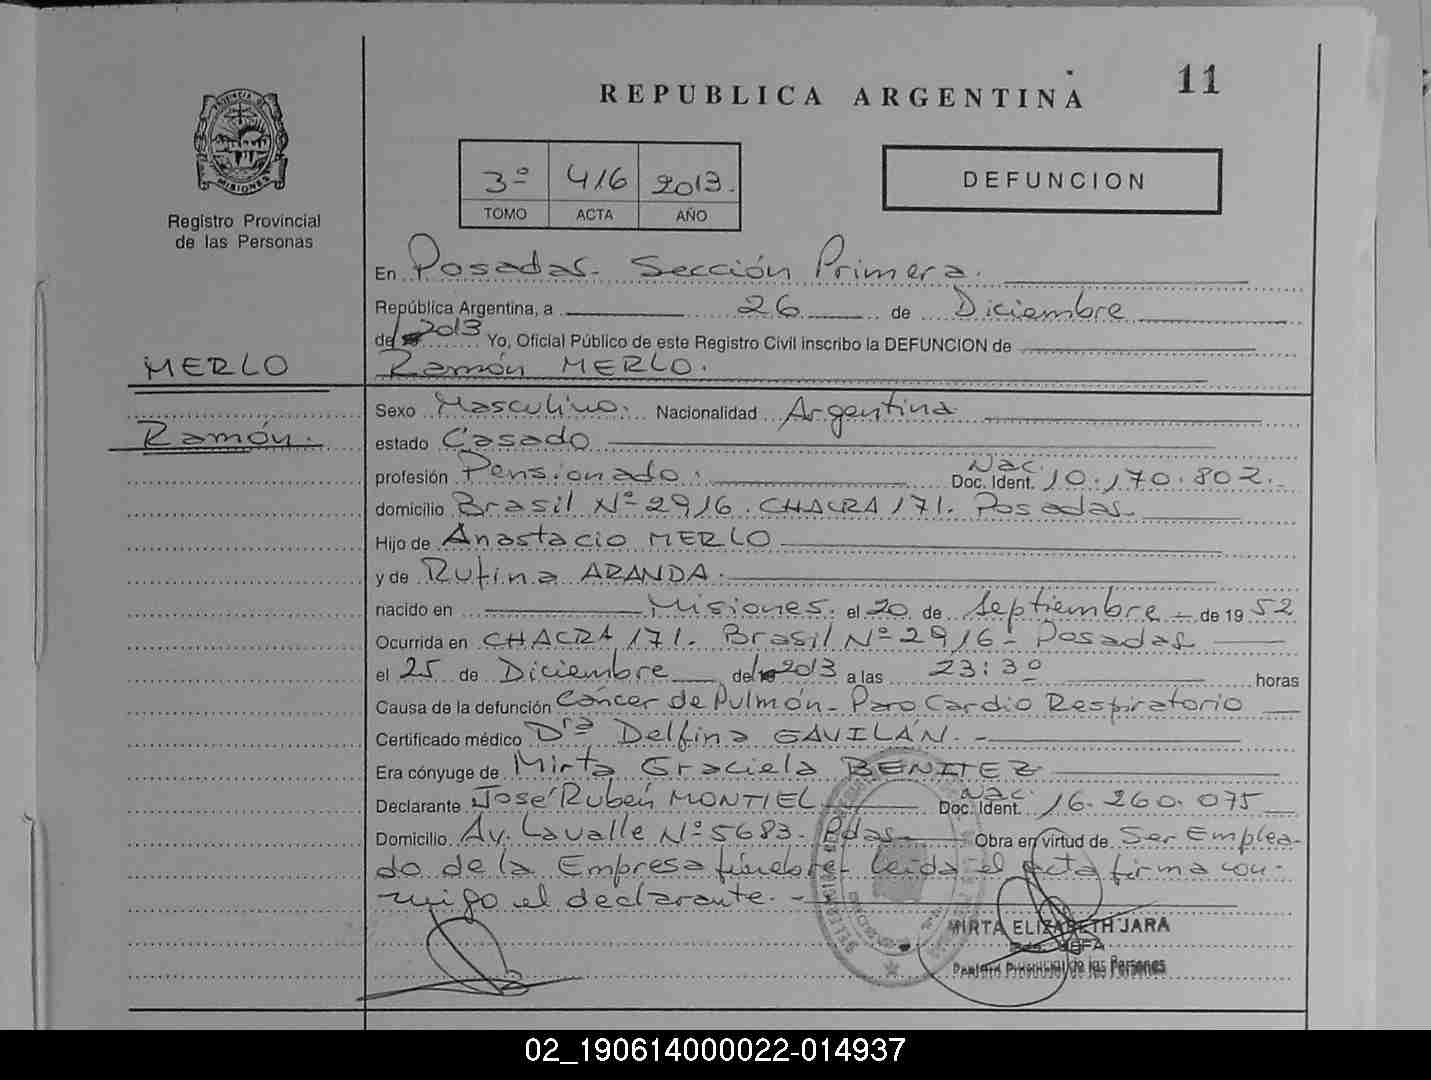 REPUBLICA ARGENTINA 11
PROVINCIA DE MISIONES
Registro Provincial
de las Personas
3º 416 2013.
TOMO ACTA AÑO
DEFUNCION
En Posadas. Sección Primera.
República Argentina, a 26 de Diciembre
de 2013 Yo, Oficial Público de este Registro Civil inscribo la DEFUNCION de
MERLO Ramón MERLO.
Ramón.
Sexo Masculino. Nacionalidad Argentina
estado Casado
profesión Pensionado. Nac. Doc. Ident. 10.170.802.
domicilio Brasil Nº 2916. CHACRA 171. Posadas.
Hijo de Anastacio MERLO
y de Rufina ARANDA.
nacido en Misiones. el 20 de Septiembre de 1952
Ocurrida en CHACRA 171. Brasil Nº 2916- Posadas
el 25 de Diciembre de 2013 a las 23:30 horas
Causa de la defunción Cáncer de Pulmón- Paro Cardio Respiratorio
Certificado médico Drª Delfina GAVILÁN.
Era cónyuge de Mirta Graciela BENITEZ
Declarante José Rubén MONTIEL Nac. Doc. Ident. 16.260.075
Domicilio Av. Lavalle Nº 5683. Pdas. Obra en virtud de Ser Emplea-
do de la Empresa fúnebre leída el acta firma con-
migo el declarante.
MIRTA ELIZABETH JARA
JEFA
Registro Provincial de las Personas
02_190614000022-014937